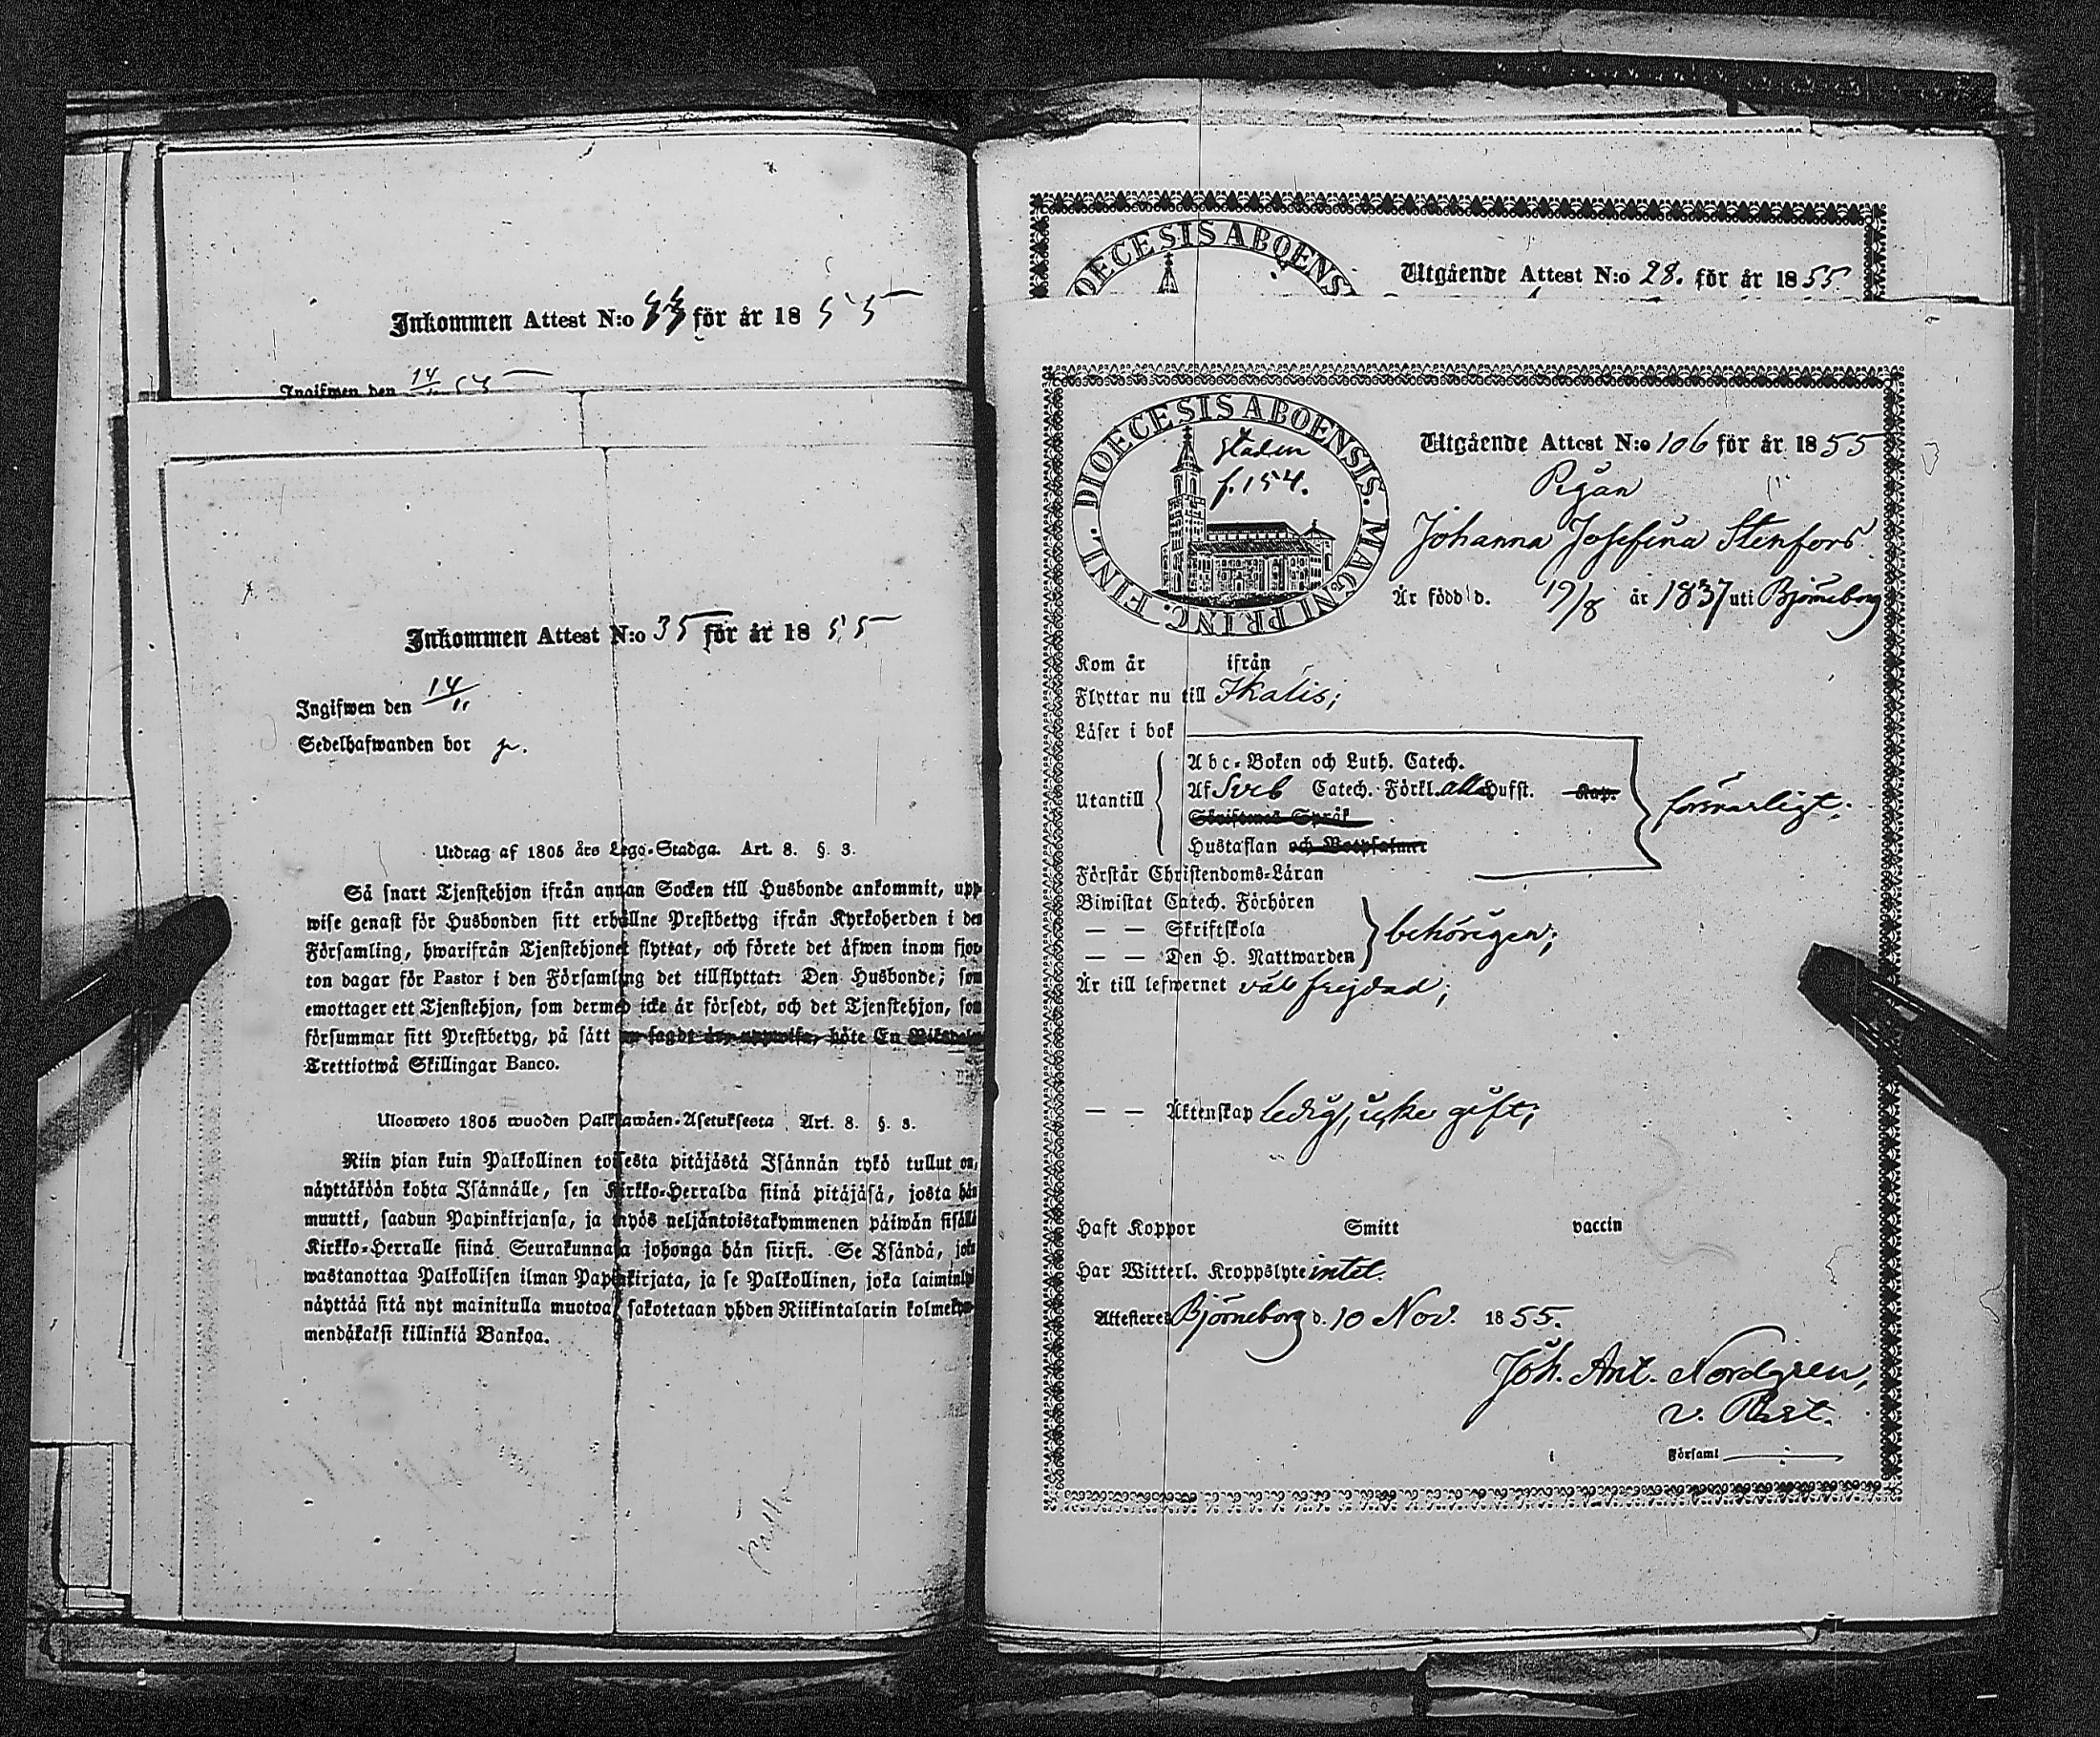 Inkommen Attest N:o för år 1855
Ingifwen den 14/11 55
Inkommen Attest N:o 35 för år 1855
Ingifwen den 14/11
Sedelhafwanden bor
Utdrag af 1805 års Lego-Stadga. Art. 8. §. 3.
Så snart Tjenstehjon ifrån annan Socken till Husbonde ankommit, upp-
wise genast för Husbonden sitt erhållne Prestbetyg ifrån Kyrkoherden i den
Församling, hwarifrån Tjenstehjonet flyttat, och förete det äfwen inom fjor-
ton dagar för Pastor i den Församling det tillflyttat: Den Husbonde; som
emottager ett Tjenstehjon, som dermed icke är försedt, och det Tjenstehjon, som
försummar sitt Prestbetyg, på sätt nu sagdt är, uppwisa, böte En Riksdaler
Trettiotwå Skillingar Banco.
Ulosweto 1805 wuoden Palkkawäen-Asetuksesta Art. 8. §. 3.
Niin pian kuin Palkollinen toisesta pitäjästä Isännän tykö tullut on,
näyttäköön kohta Isännälle, sen Kirkko-Herralda siinä pitäjäsä, josta hän
muutti, saadun Papinkirjansa, ja myös neljäntoistakymmenen päiwän sisällä
Kirkko-Herralle siinä Seurakunnasa johonga hän siirsi. Se Isändä, joka
wastanottaa Palkollisen ilman Papinkirjata, ja se Palkollinen, joka laiminlyö
näyttää sitä nyt mainitulla muotoa, sakotetaan yhden Riikintalarin kolmekym-
mendäkaksi killinkiä Bankoa.
DIOECESIS ABOENS
Utgående Attest N:o 28. för år 1855
DIOECESIS ABOENSIS. MAGNI PRINC. FINL.
Staden
f. 154.
Utgående Attest N:o 106 för år 1855
Pigan
Johanna Josefina Stenfors
Är född d. 19/8 år 1837 uti Björneborg
Kom år ifrån
Flyttar nu till Ikalis;
Läser i bok
Utantill
Abc-Boken och Luth. Catech.
Af Sveb Catech. Förkl. alla Hufst. Kap.
Skriftenes Språk
Hustaflan och Botpsalmer
försvarligt;
Förstår Christendoms-Läran
Biwistat Catech. Förhören
— — Skriftskola
— — Den H. Nattwarden
behörigen;
Är till lefwernet väl frejdad;
— — Äktenskap ledig, icke gift;
Haft Koppor Smitt vaccin
Har Witterl. Kroppslyte intet.
Attesteres Björneborg d. 10 Nov. 1855.
Joh. Ant. Nordgren,
v. Past.
i Församl